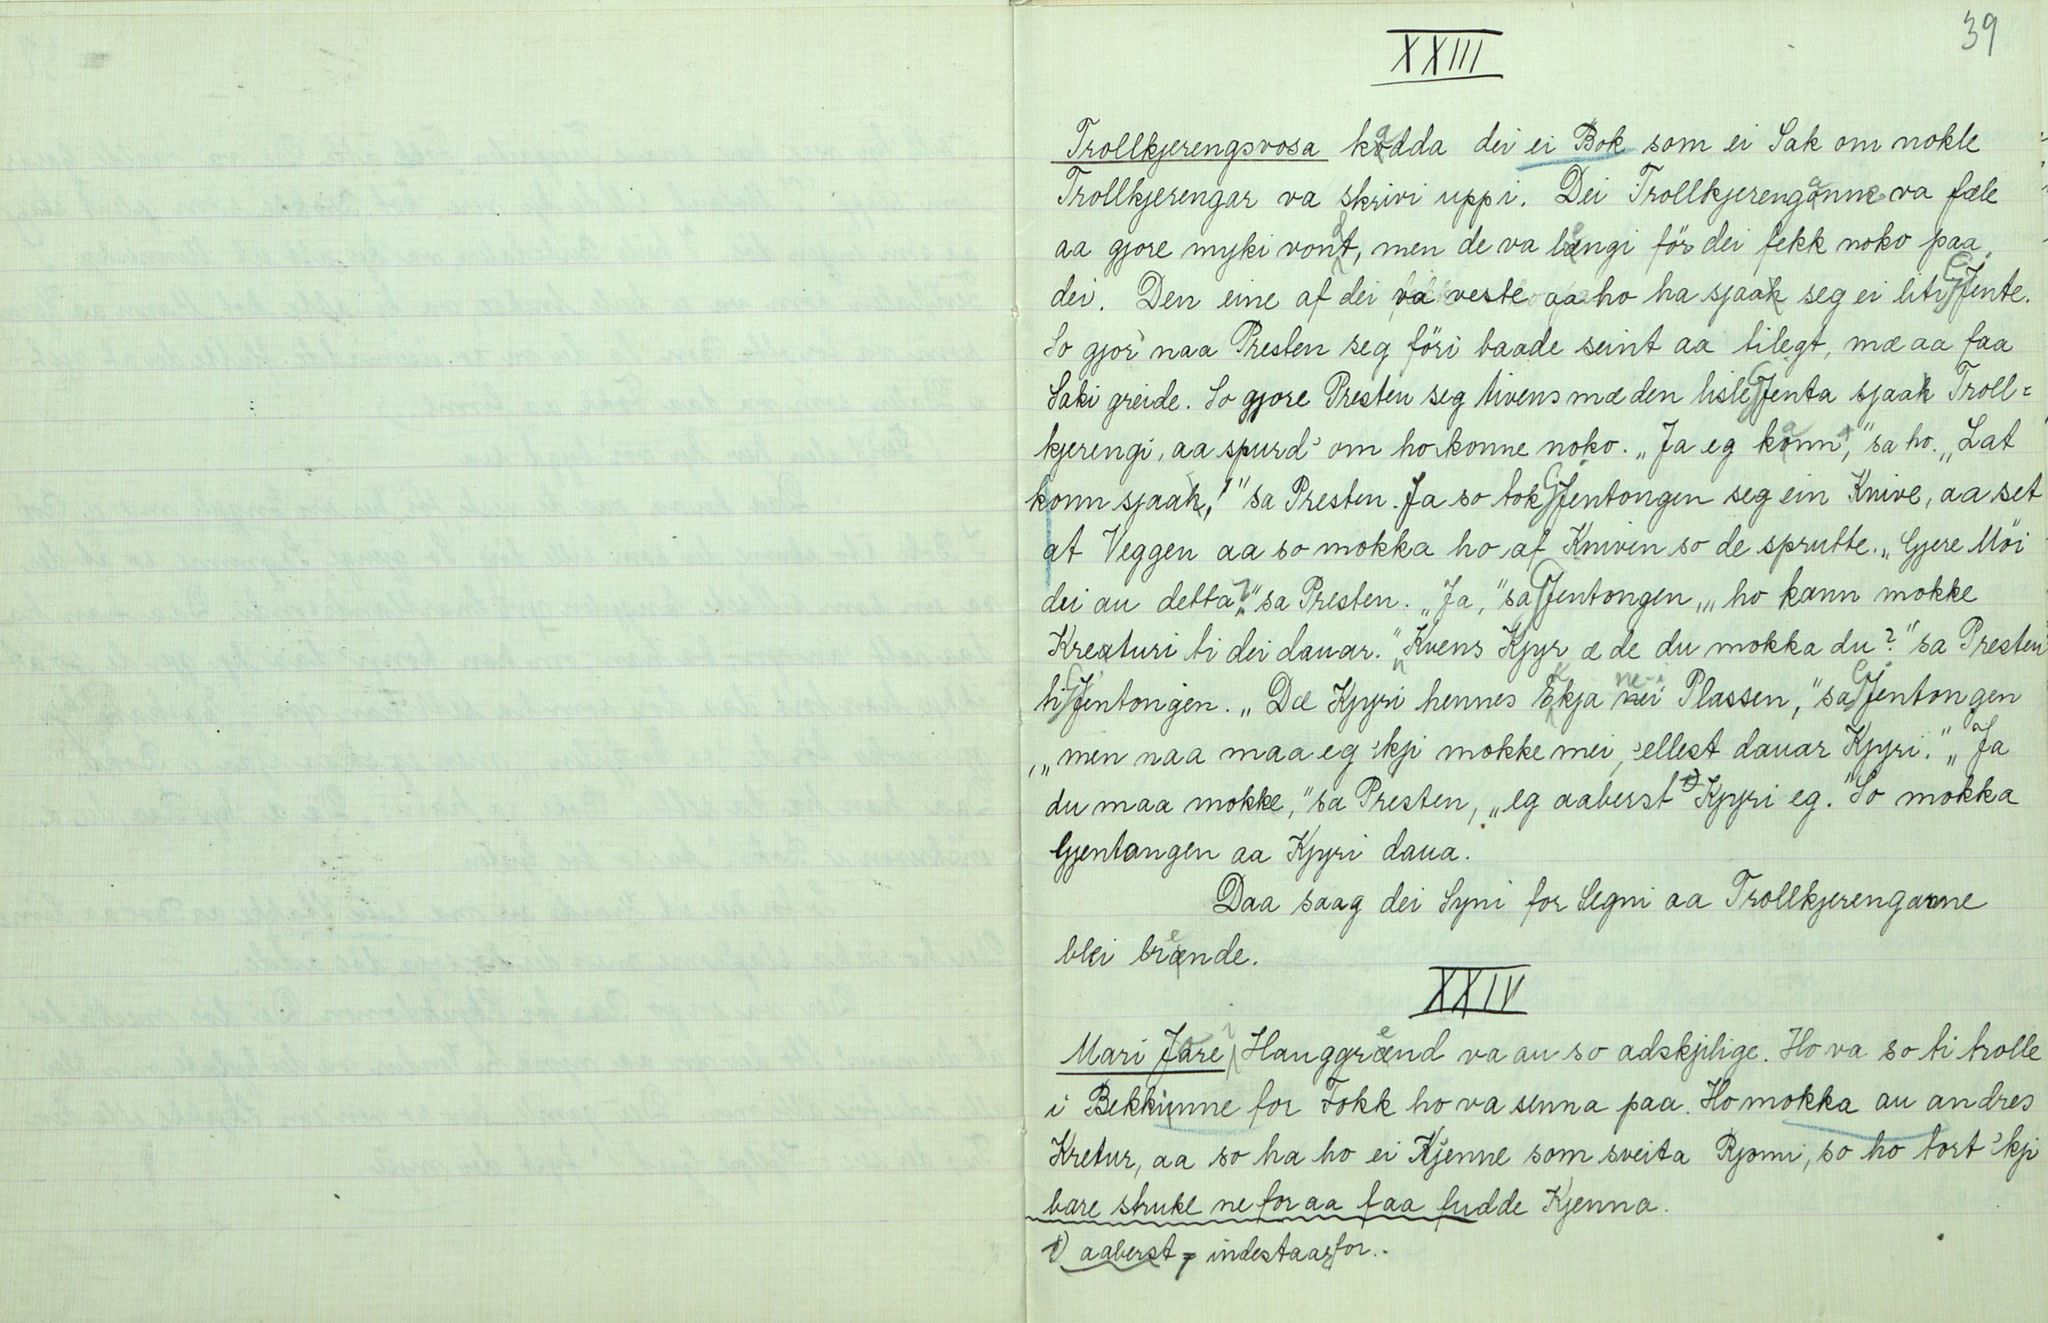 39
XXIII
Trollkjerengsvosa kadda dei ei Bok som ei Sak om nokle
Trollkjerengar va skrivi uppi. Dei Trollkjerenganne va fæle
aa gjore myki vondt, men de va lengi för dei fekk noko paa
dei. Den eine af dei va veste aa ho ha sjaa seg ei liti Gjente.
So gjor' naa Presten seg föri baade seint aa tilegt, mæ aa faa
Saki greide. So gjore Presten seg tivens mæ den lisle Gjenta sjaa Troll=
kjerengi, aa spurd' om ho konne noko. „Ja eg kann," sa ho. „Lat
konn sjaa!" sa Presten. Ja so tok Gjentongen seg ein Knive, aa set
at Veggen aa so mokka ho af Kniven so de sprutte. „Gjere Möi
dei au detta?" sa Presten. „Ja," sa Gjentongen, „ho kann mokke
Kreaturi ti dei dauar." „Kvens Kjyr æ de du mokka du?" sa Presten
ti Gjentongen. „Dæ Kjyri hennes Ekkja ne-i Plassen," sa Gjentongen
„men naa maa eg 'kji mokke mei, 'ellest dauar Kjyri." „Ja
du maa mokke," sa Presten, „eg aaberst 1) Kjyri eg." So mokka
Gjentangen aa Kjyri daua.
Daa saag dei Syni for Segni aa Trollkjerenganne
blei brende.
XXIV
Mari Jore i Hanggrend va au so adskjilige. Ho va so ti trolle
i Bekkinne for Fokk ho va senna paa. Ho mokka au andres
Kretur, aa so ha ho ei Kjenne som sveita Rjomi, so ho tort 'kji
bare struke ne for aa faa fudde Kjenna.
1) aaberst = indestaar for.